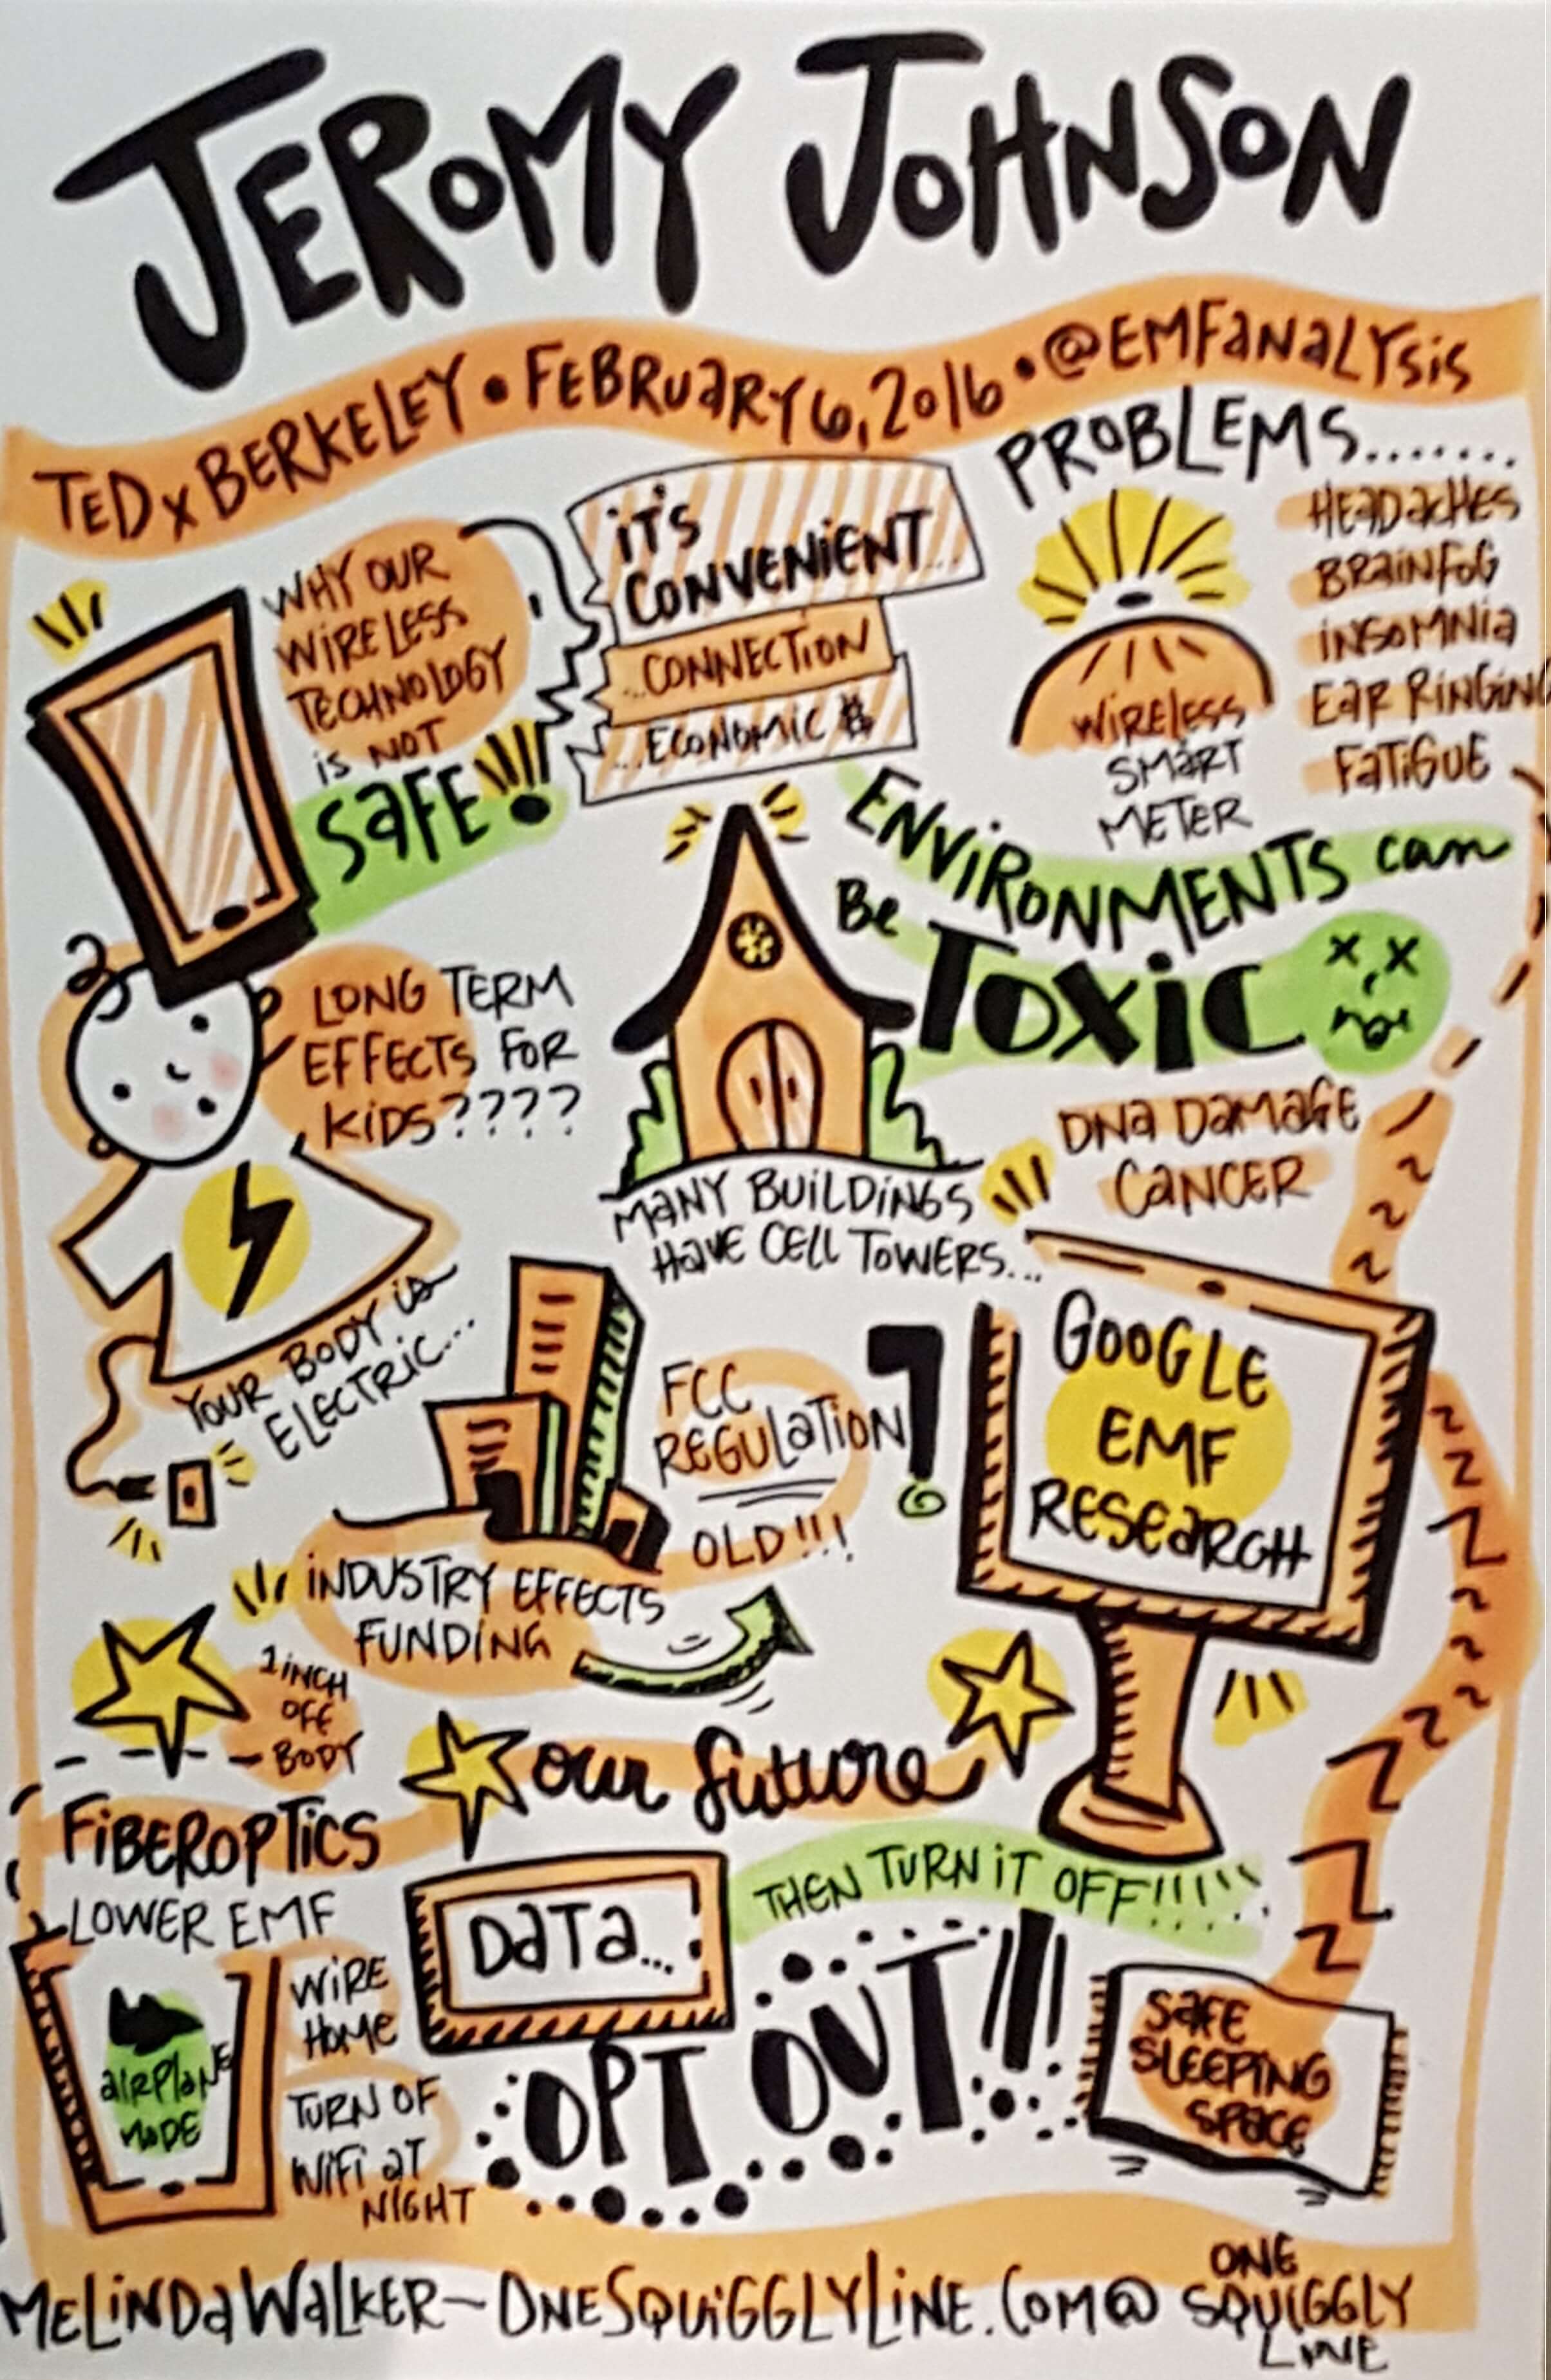 JEROMY JOHNSON
TEDx BERKELEY • FEBRUARY 6, 2016 • @EMFANALYSIS
WHY OUR
WIRELESS
TECHNOLOGY
is NOT
SAFE!
iT'S
CONVENiENT...
...CONNECTiON
...ECONOMIC $
PROBLEMS.......
HEADACHES
BRAINFOG
iNSOMNiA
EAR RINGING
FATiGUE
WiRElESS
SMART
METER
ENViRONMENTS can
Be
Toxic
DNA DAMAGE
CANCER
LONG TERM
EFFECTS FOR
KiDS????
MANY BUiLDiNGS
HAVE CELL TOWERS...
YOUR BODY is
ELECTRiC...
FCC
REGULATiON
OLD!!!
GOOGLE
EMF
RESEARCH
iNDUSTRY EFFECTS
FUNDiNG
1 iNCH
OFF
BODY
our future
FiBEROPTiCS
LOWER EMF
AiRPlANE
MODE
WiRE
HOME
TURN OF
WiFi AT
NIGHT
DATA...
THEN TURN iT OFF!!!!!
OPT OUT!!!
SAFE
SLEEPING
SPACE
MELiNDA WALKER - ONESQUiGGLYLiNE.COM @ ONE
SQUIGGLY
LINE